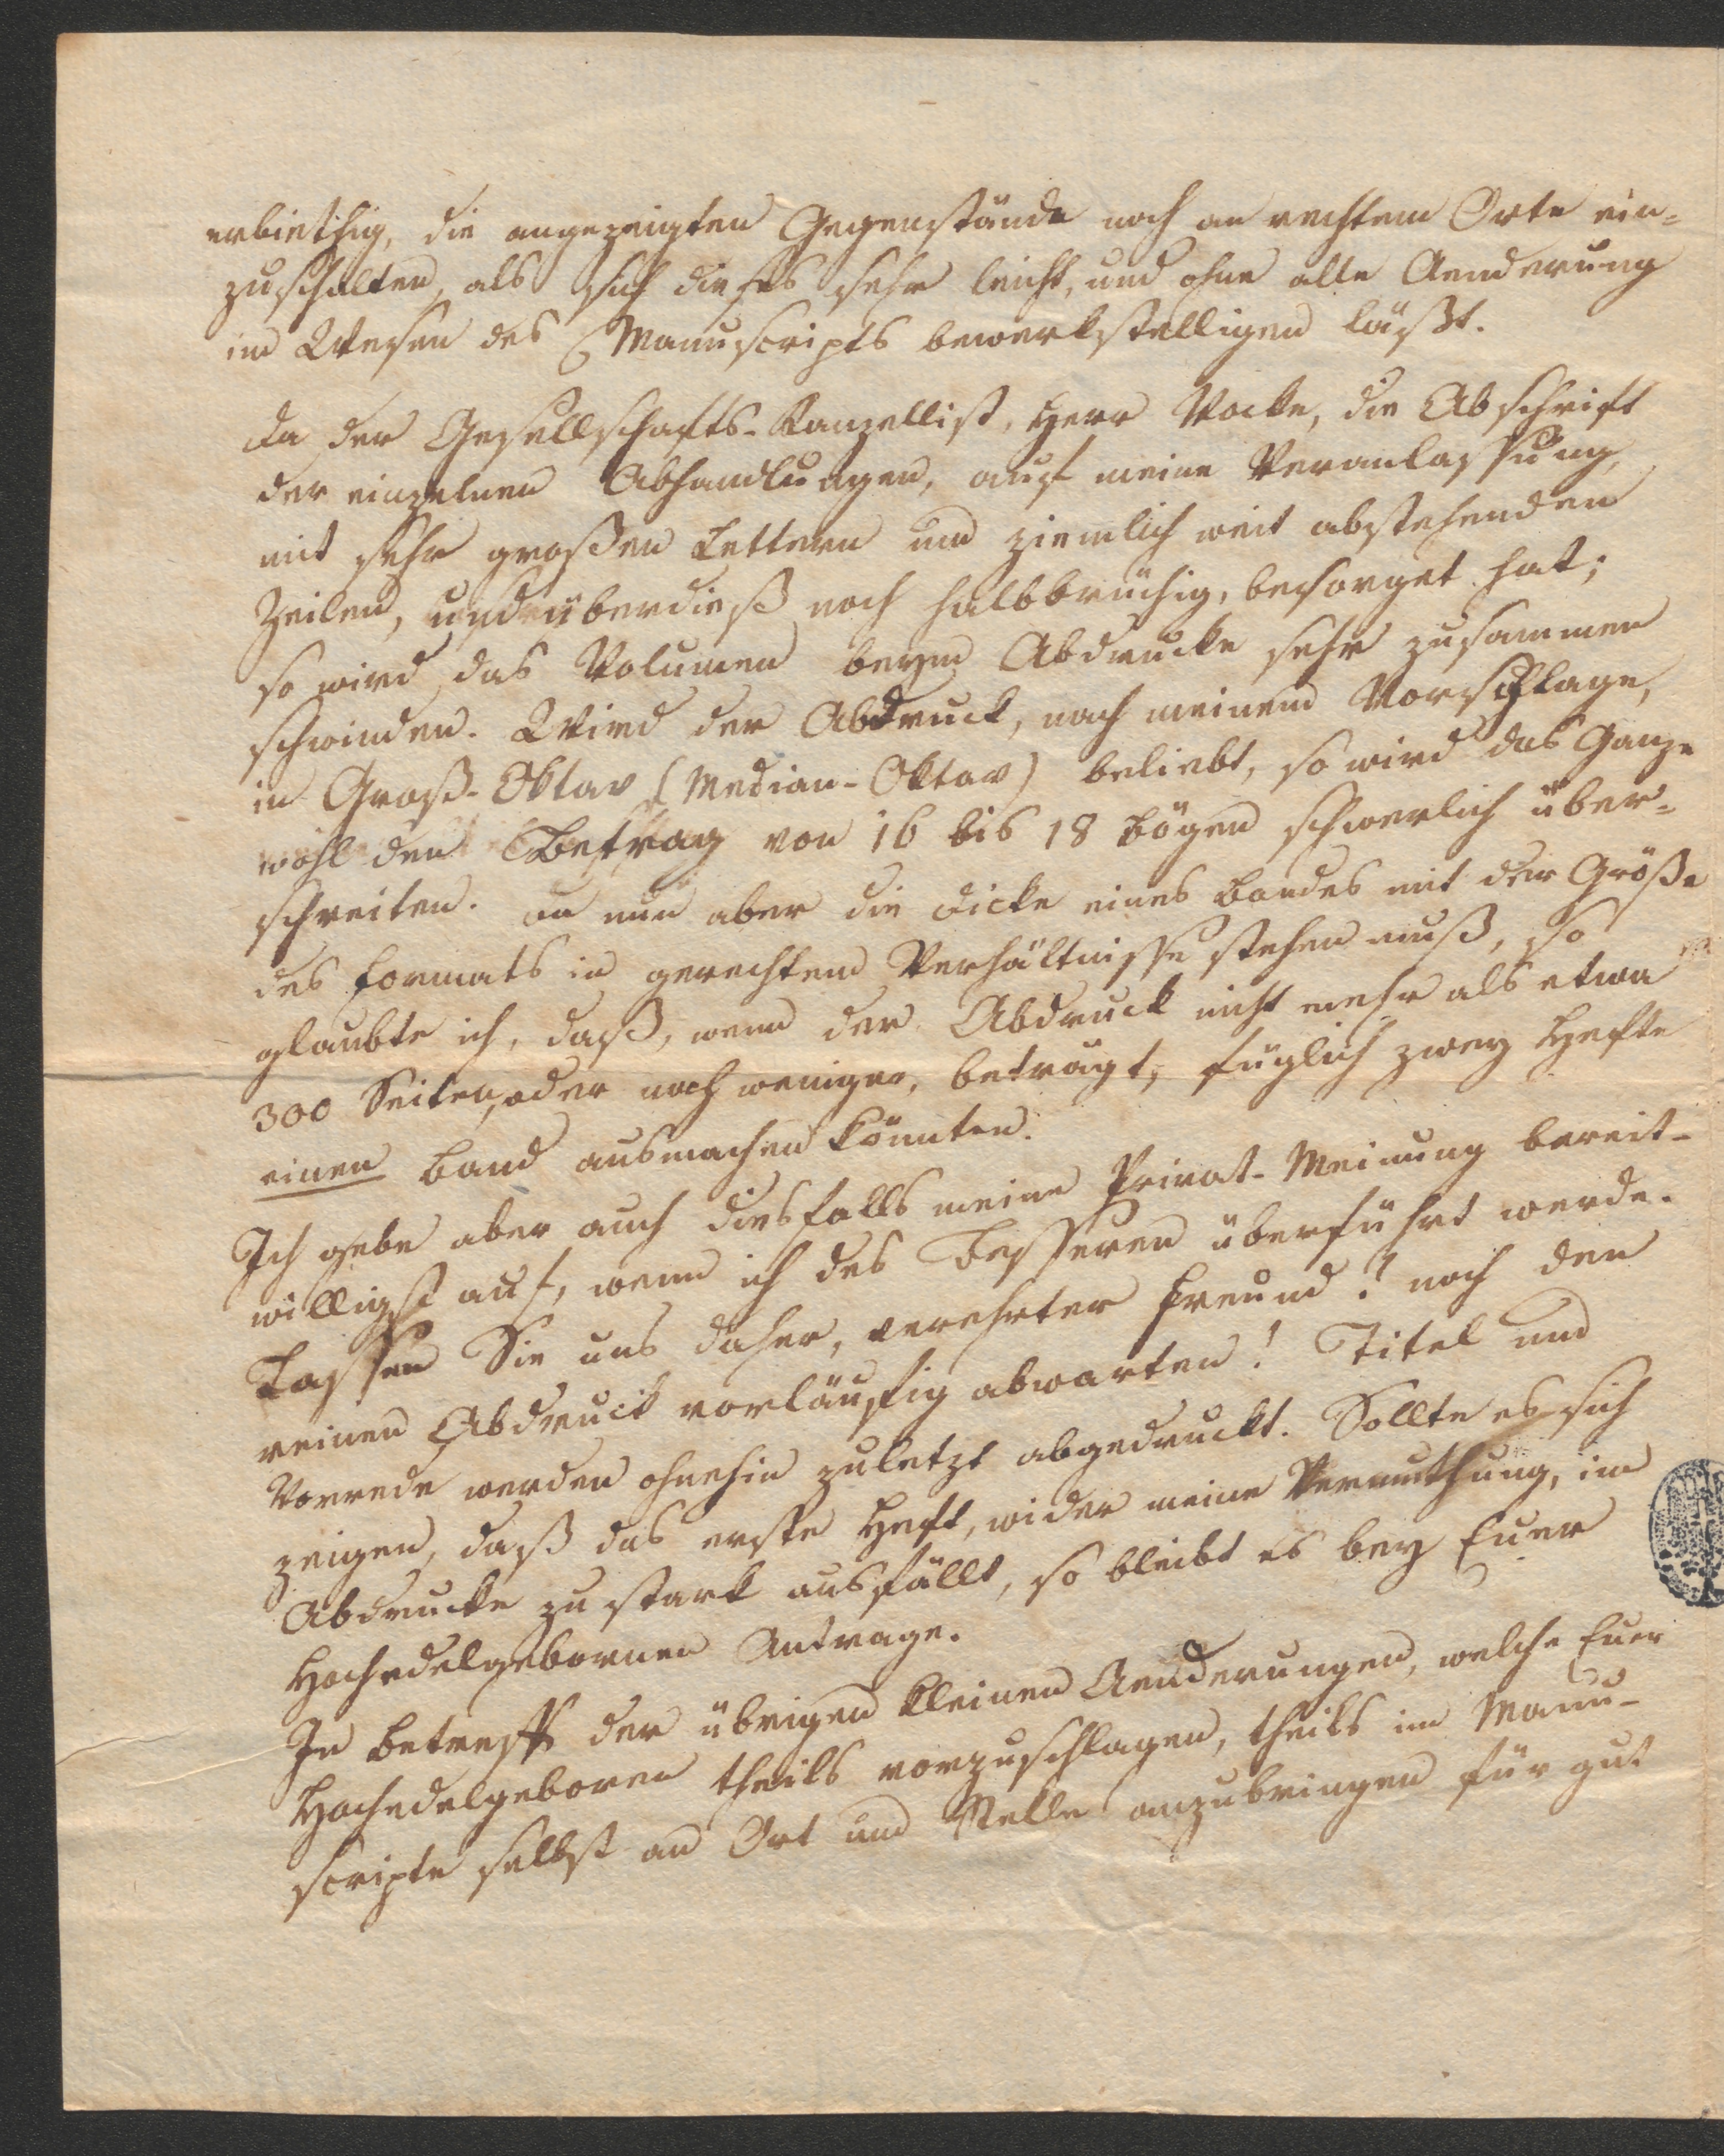 erbiethig, die angezeigten Gegenstände noch an rechtem Orte ein-
zuschalten, als sich dieses sehr leicht, und ohne alle Aenderung
im Wesen des Manuscripts bewerkstelligen läßt.
Da der Gesellschafts-Kanzellist, Herr Vocke, die Abschrift
der einzelnen Abhandlungen, auf meine Veranlassung,
mit sehr großen Lettern und ziemlich weit abstehenden
Zeilen, und überdieß noch halbbrüchig, besorget hat;
so wird das Volumen beym Abdrucke sehr zusammen
schwinden. Wird der Abdruck, nach meinem Vorschlage,
in Groß-Oktav (Median-Oktav) beliebt, so wird das Ganze
wohl den Betrag von 16 bis 18 Bögen schwerlich über-
schreiten. Da nun aber die Dicke eines Bandes mit der Größe
des Formats in gerechtem Verhältnisse stehen muß, so
glaubte ich, daß, wenn der Abdruck nicht mehr als etwa
300 Seiten, oder noch weniger, beträgt, füglich zwey Hefte
einen Band ausmachen könnten.
Ich gebe aber auch diesfalls meine Privat-Meinung bereit-
willigst auf, wenn ich des Besseren überführt werde.
Lassen Sie uns daher, verehrter Freund! noch den
reinen Abdruck vorläufig abwarten! Titel und
Vorrede werden ohnehin zuletzt abgedruckt. Sollte es sich
zeigen, daß das erste Heft, wider meine Vermuthung, im
Abdrucke zu stark ausfällt, so bleibt es bey Euer
Hochedelgebornen Antrage.
In Betreff der übrigen kleinen Aenderungen, welche Euer
Hochedelgeboren theils vorzuschlagen, theils im Manu-
scripte selbst an Ort und Stelle anzubringen für gut